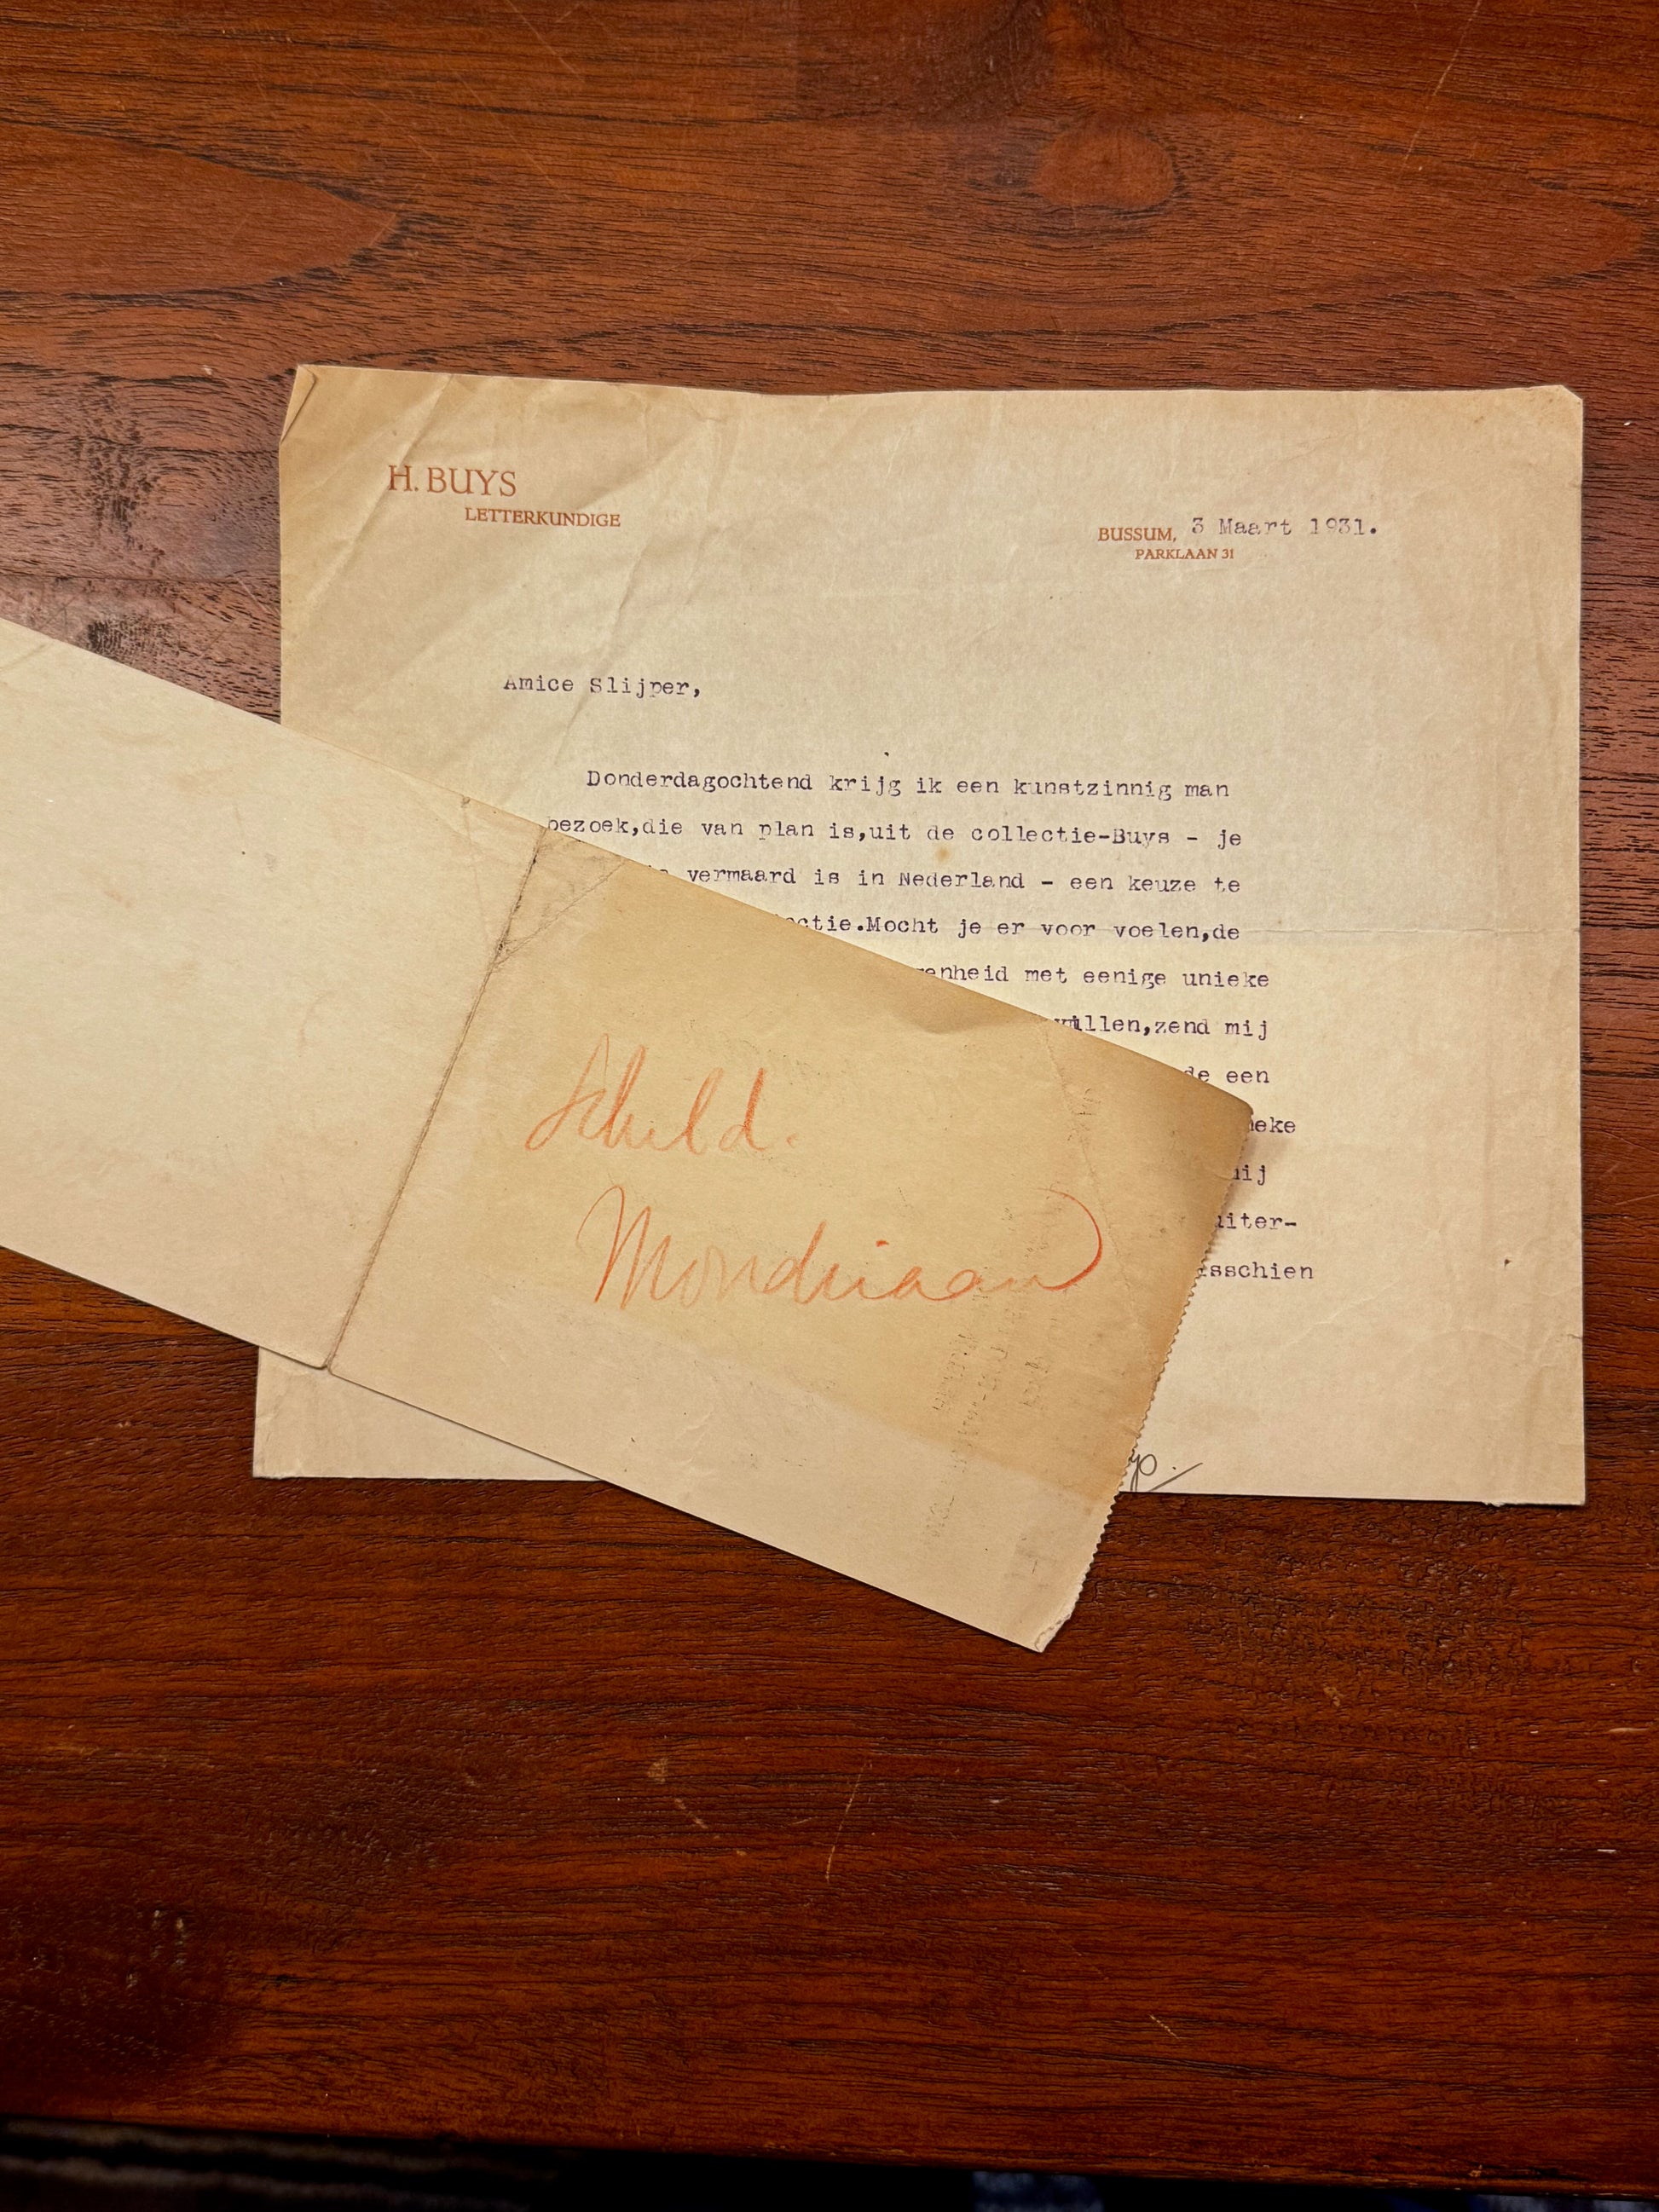 H. BUYS
LETTERKUNDIGE
BUSSUM, 3 Maart 1931.
PARKLAAN 31
Amice Slijper,
Donderdagochtend krijg ik een kunstzinnig man
bezoek,die van plan is,uit de collectie-Buys - je
vermaard is in Nederland - een keuze te
ctie.Mocht je er voor voelen,de
enheid met eenige unieke
willen,zend mij
de een
eke
ij
uiter-
sschien
Schild.
Mondriaan